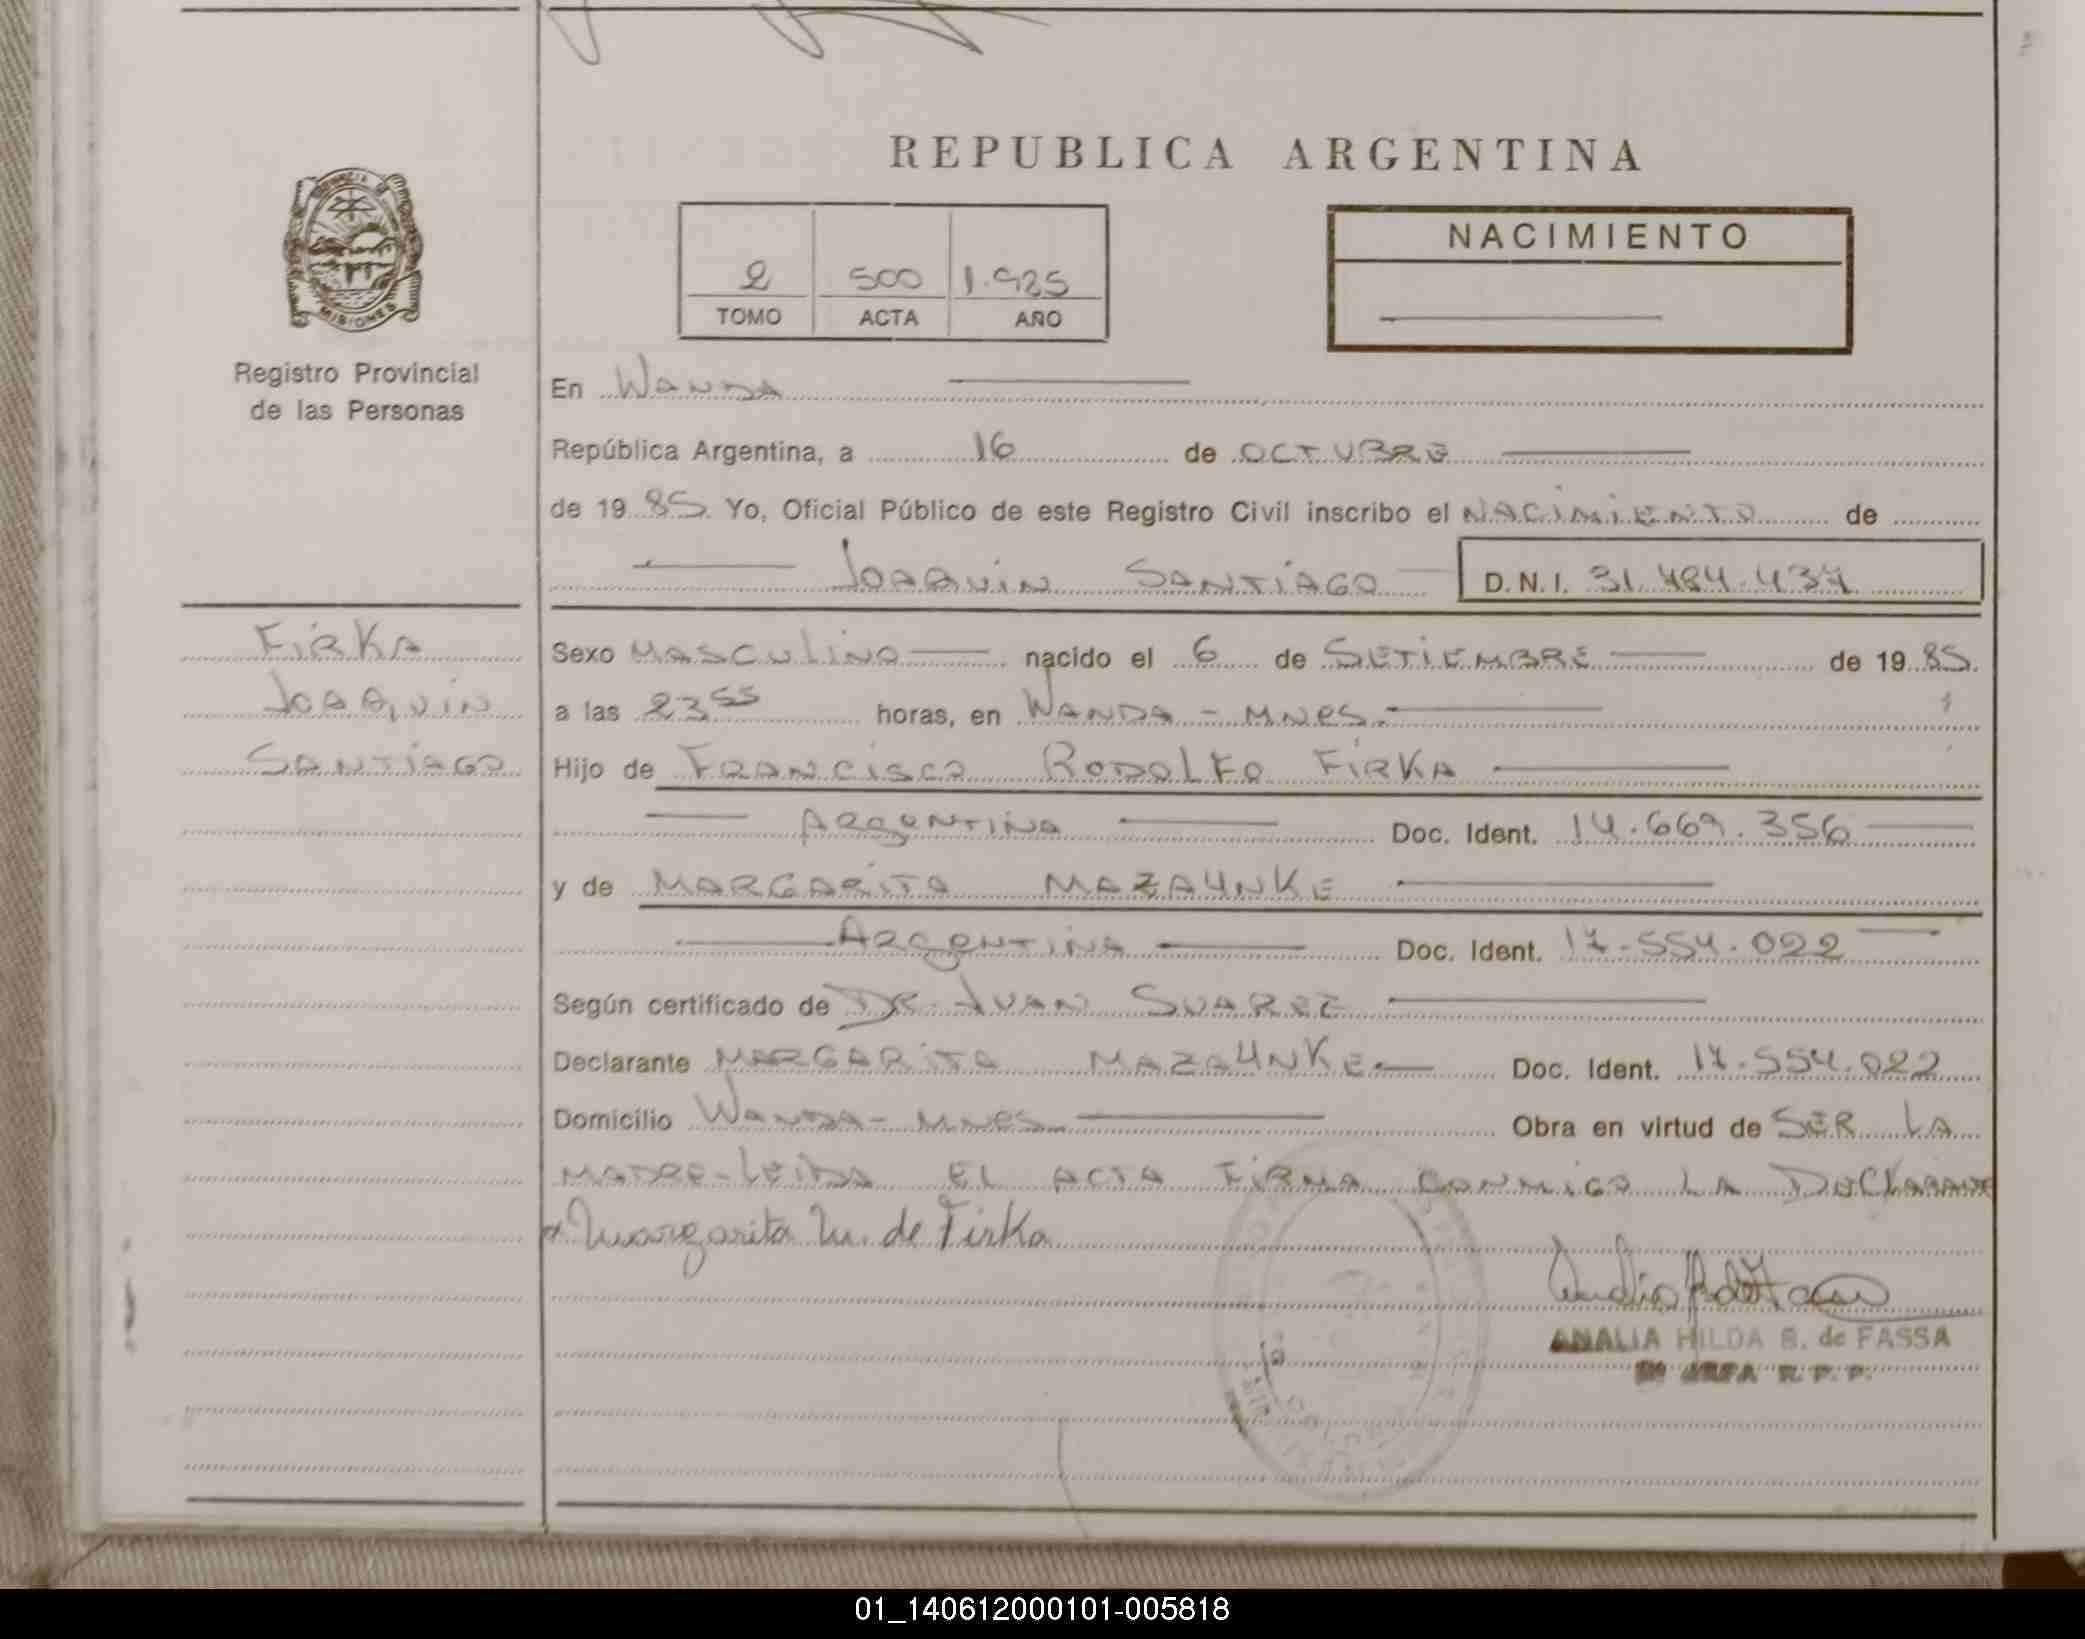 REPUBLICA ARGENTINA
MISIONES
Registro Provincial
de las Personas
2 500 1.985
TOMO ACTA AÑO
NACIMIENTO
En WANDA
República Argentina, a 16 de OCTUBRE
de 1985 Yo, Oficial Público de este Registro Civil inscribo el NACIMIENTO de
JOAQUIN SANTIAGO D.N.I. 31.484.437
FIRKA
JOAQUIN
SANTIAGO
Sexo MASCULINO nacido el 6 de SETIEMBRE de 1985.
a las 23 55 horas, en WANDA - MNES.
Hijo de FRANCISCO RODOLFO FIRKA
ARGENTINA Doc. Ident. 14.669.356
y de MARGARITA MAZAUNKE
ARGENTINA Doc. Ident. 17.554.022
Según certificado de DR. JUAN SUAREZ
Declarante MARGARITA MAZAUNKE Doc. Ident. 17.554.022
Domicilio WANDA - MNES. Obra en virtud de SER LA
MADRE - LEIDA EL ACTA FIRMA CONMIGO LA DECLARANTE
Margarita M. de Firka
ANALIA HILDA B. de FASSA
R.P.P.
01_140612000101-005818